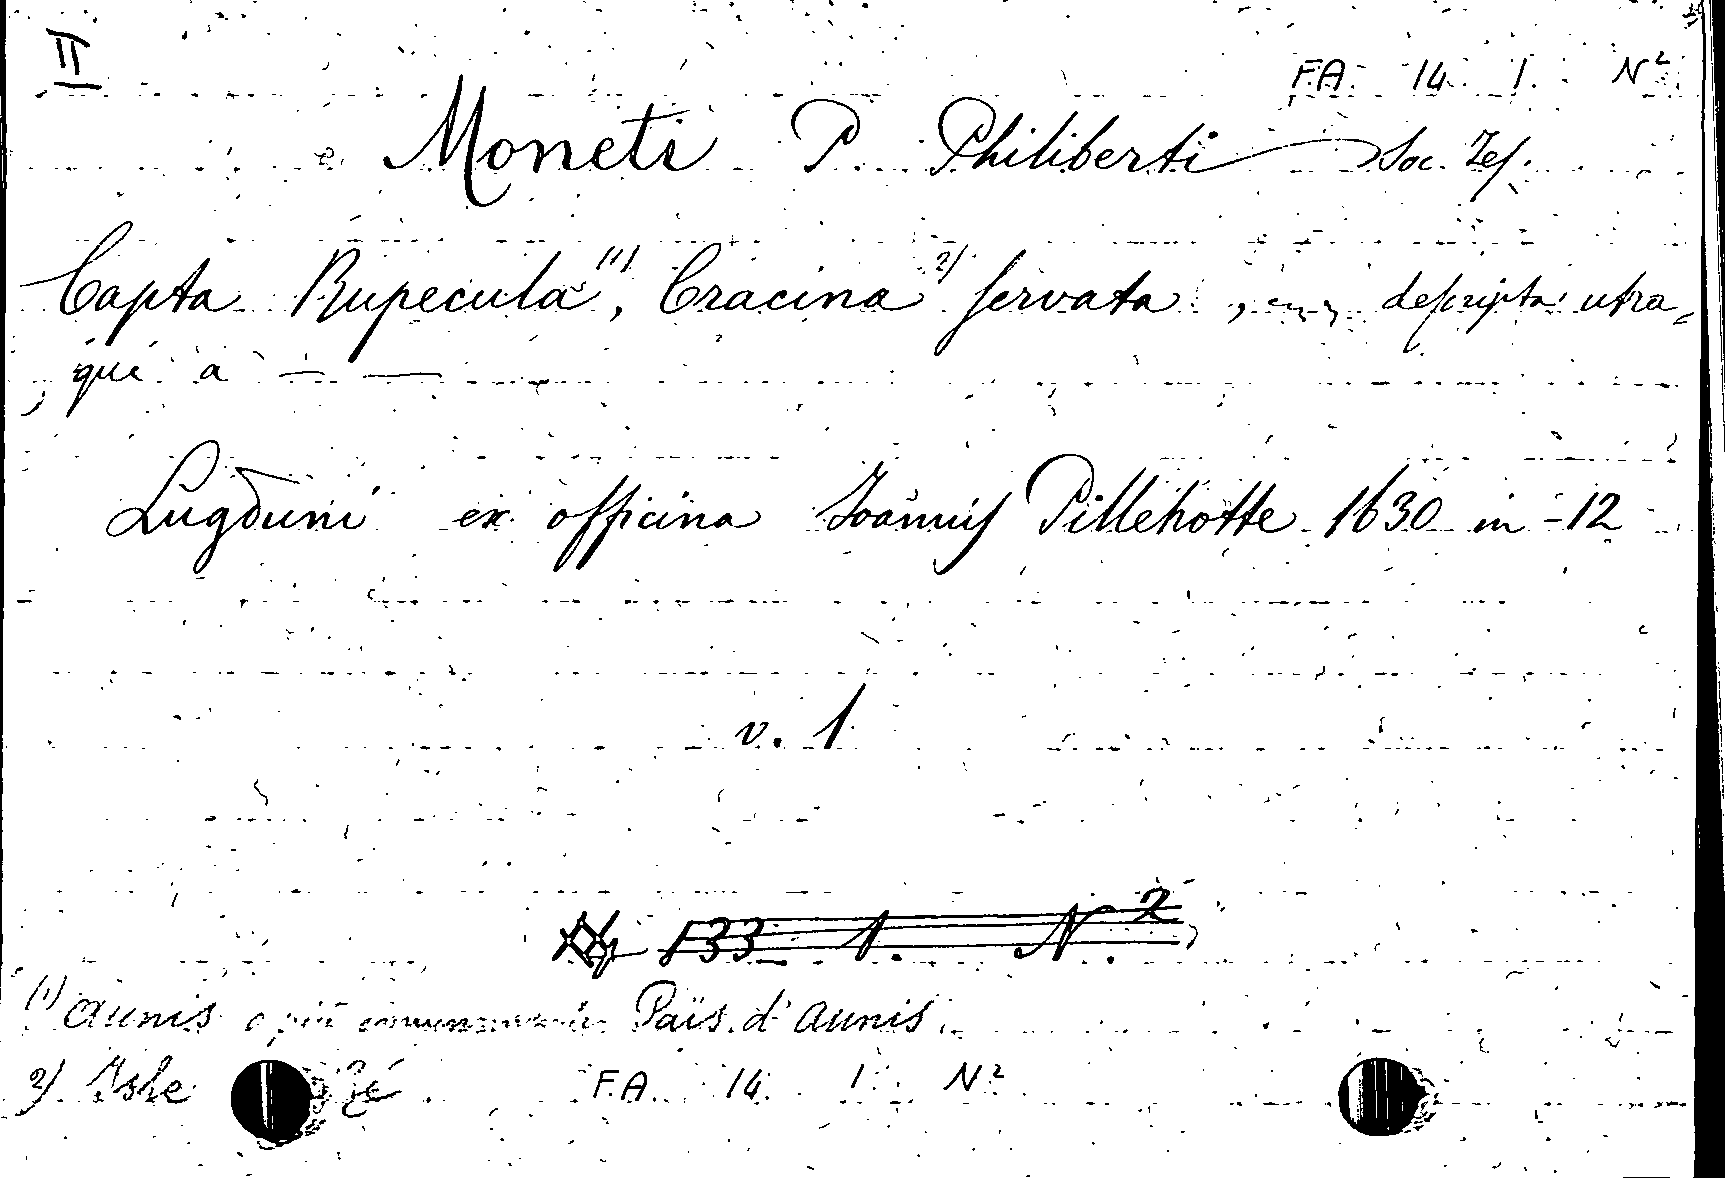 II
FA. 14. 1. N²
Moneti P. Philiberti Soc. Jes.
Capta Rupecula (1), Cracina 2) servata, descripta utra=
que a — —
Lugduni ex officina Joannis Pillehotte 1630 in-12
v. 1
133 1. N. 2
(1) Aunis o più comunemente Païs d'Aunis
2) Isle Ré FA. 14. 1. N²